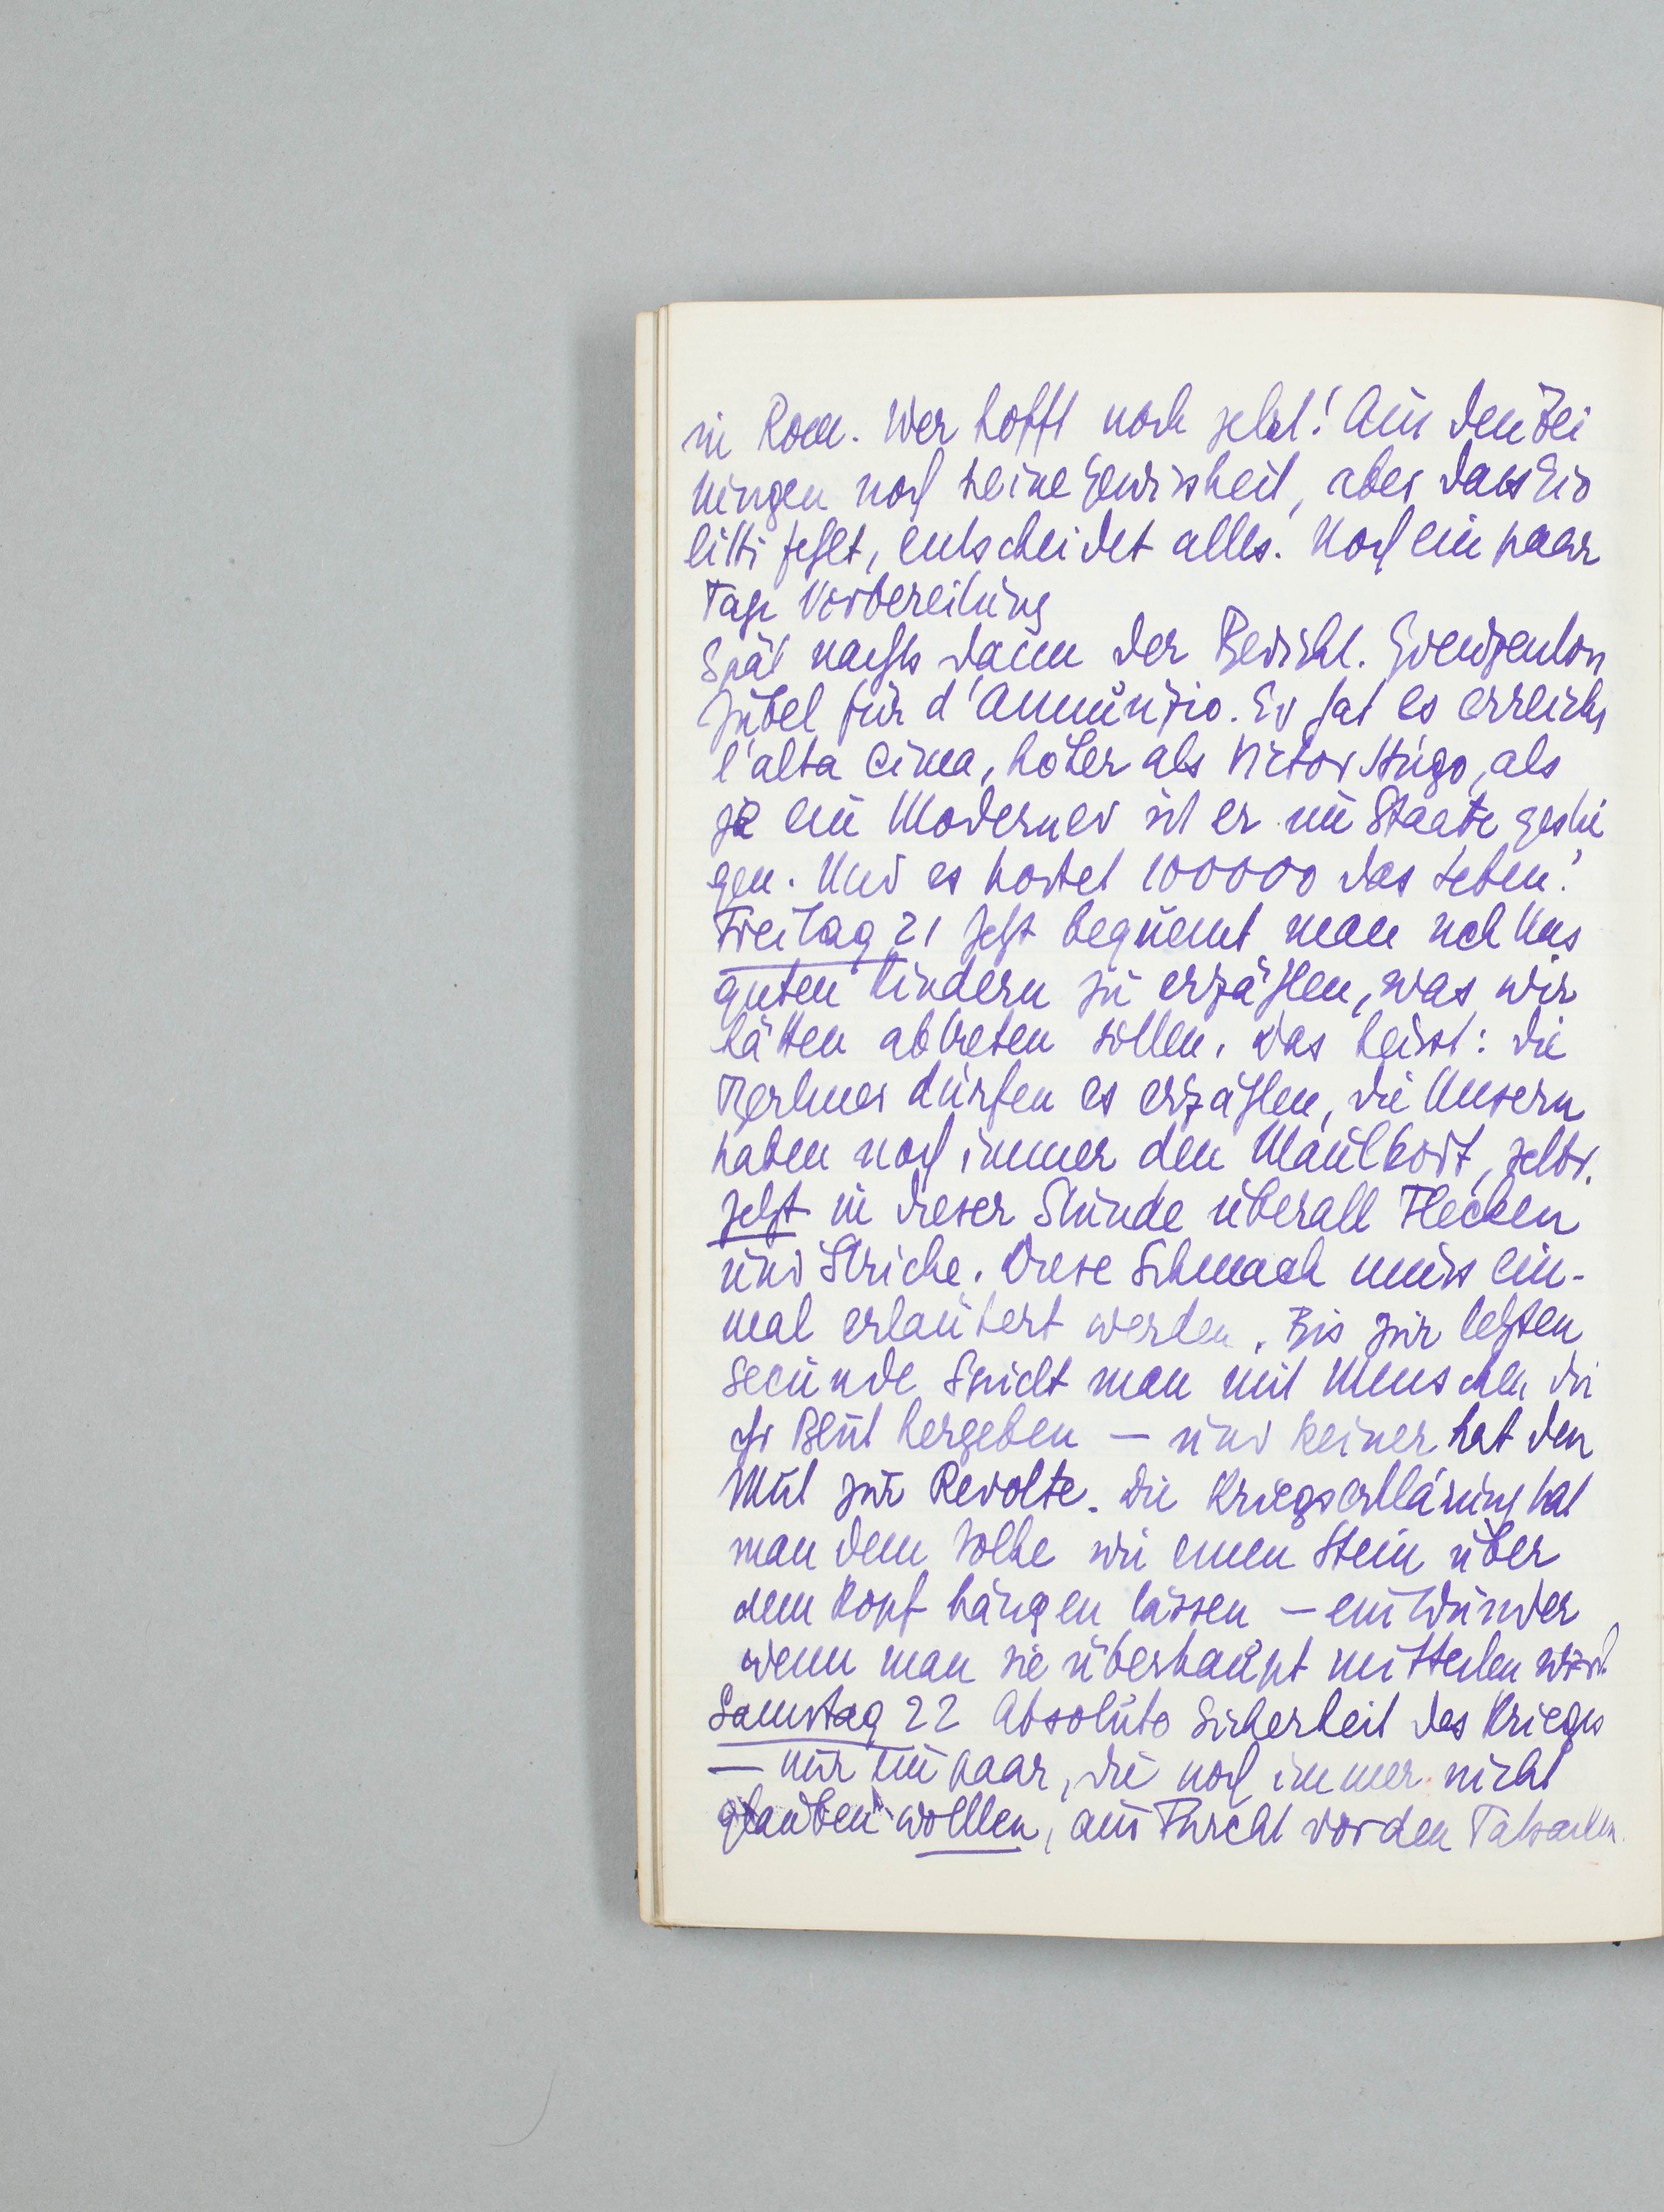 in Rom. Wer hofft noch jetzt! Aus den Zei
tungen noch keine Gewissheit, aber dass Gio
litti fehlt, entscheidet alles. Noch ein paar
Tage Vorbereitung
Spät nachts dann der Bericht. Grenzenlos
Jubel für d'Annunzio. Er hat es erreicht
l'alta cima, höher als Victor Hugo, als
je ein Moderner ist er im Staate gestie
gen. Und es kostet 100000 das Leben!
Freitag 21 Jetzt bequemt man sich uns
guten Kindern zu erzählen, was wir
hätten abtreten sollen. Das heisst: die
Berliner dürfen es erzählen, die Unsern
haben noch immer den Maulkorb, selbst
jetzt in dieser Stunde überall Flecken
und Striche. Diese Schmach muss ein-
mal erläutert werden. Bis zur letzten
Secunde spielt man mit Menschen die
ihr Blut hergeben – und keiner hat den
Mut zur Revolte. Die Kriegserklärung hat
man dem Volke wie einen Stein über
dem Kopf hängen lassen – ein Wunder
wenn man sie überhaupt mitteilen wird
Samstag 22 Absolute Sicherheit des Krieges
– nur ein paar, die noch immer nicht
glauben wollen, aus Furcht vor den Tatsachen.